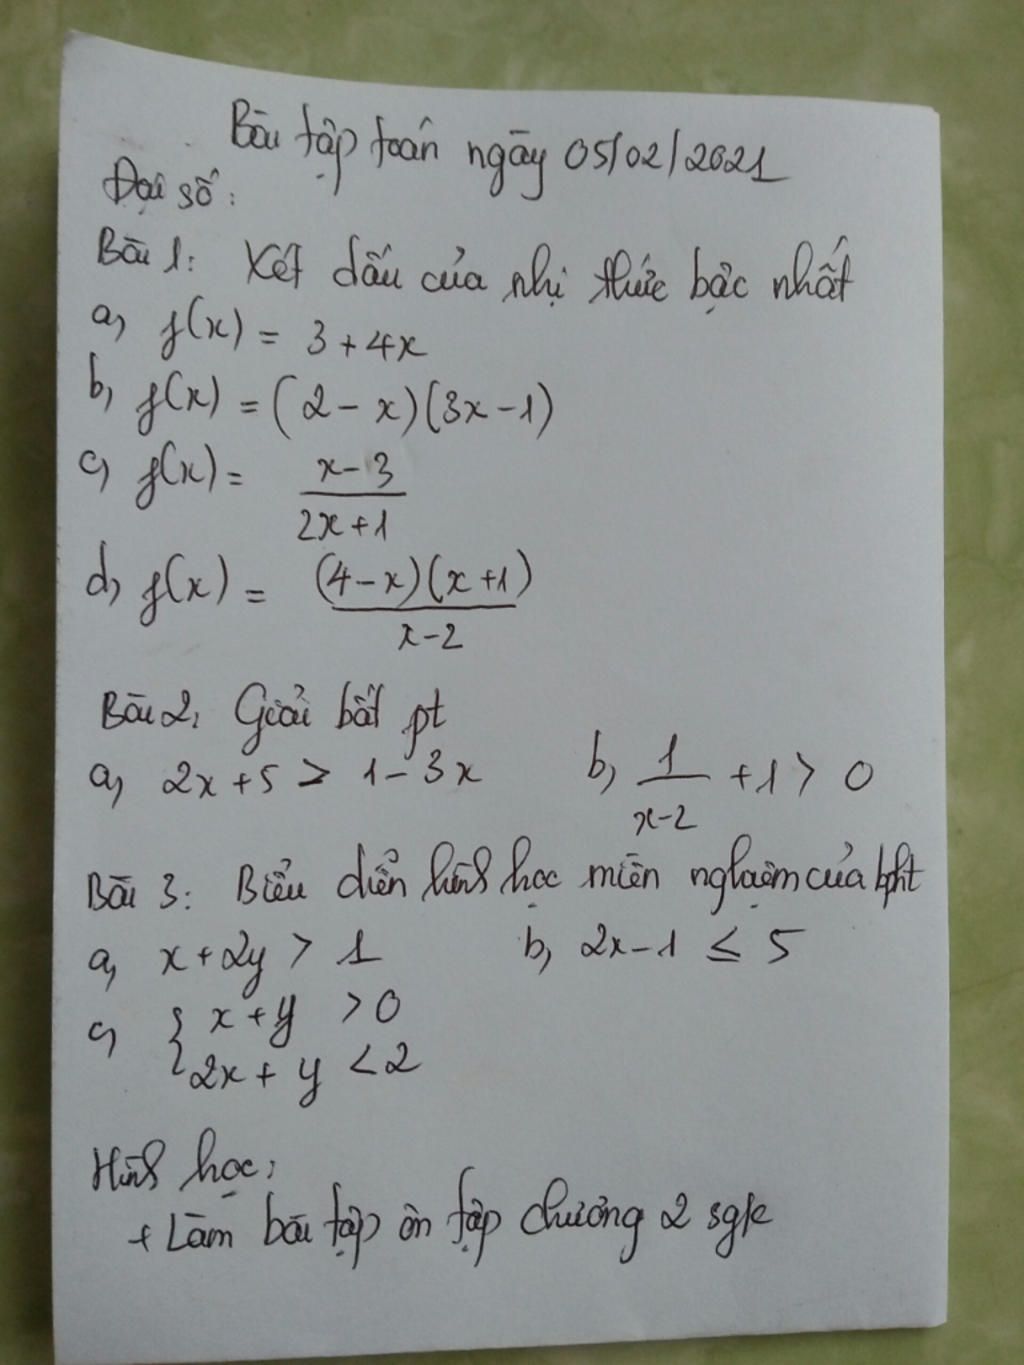 Bài tập toán ngày 05/02/2021
Đại số:
Bài 1: Xét dấu của nhị thức bậc nhất
a, f(x) = 3 + 4x
b, f(x) = (2 - x)(3x - 1)
c, f(x) = \frac{x-3}{2x+1}
d, f(x) = \frac{(4-x)(x+1)}{x-2}
Bài 2, Giải bất pt
a, 2x + 5 > 1 - 3x b, \frac{1}{x-2} + 1 > 0
Bài 3: Biểu diễn hình học miền nghiệm của bpt
a, x + 2y > 1 b, 2x - 1 ≤ 5
c, { x + y > 0
2x + y < 2
Hình học:
+ Làm bài tập ôn tập chương 2 sgk